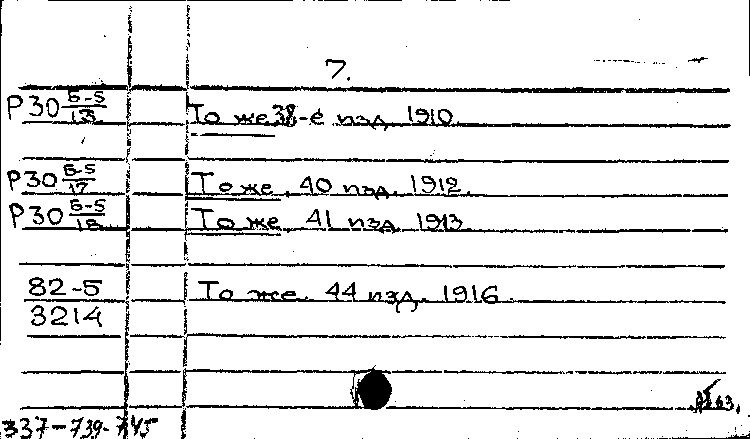 7.
Р30 Б-5/13 То же 38-е изд. 1910.
Р30 Б-5/17 То же, 40 изд. 1912.
Р30 Б-5/18 То же, 41 изд. 1913
82-5 То же. 44 изд. 1916.
3214
337-739-745